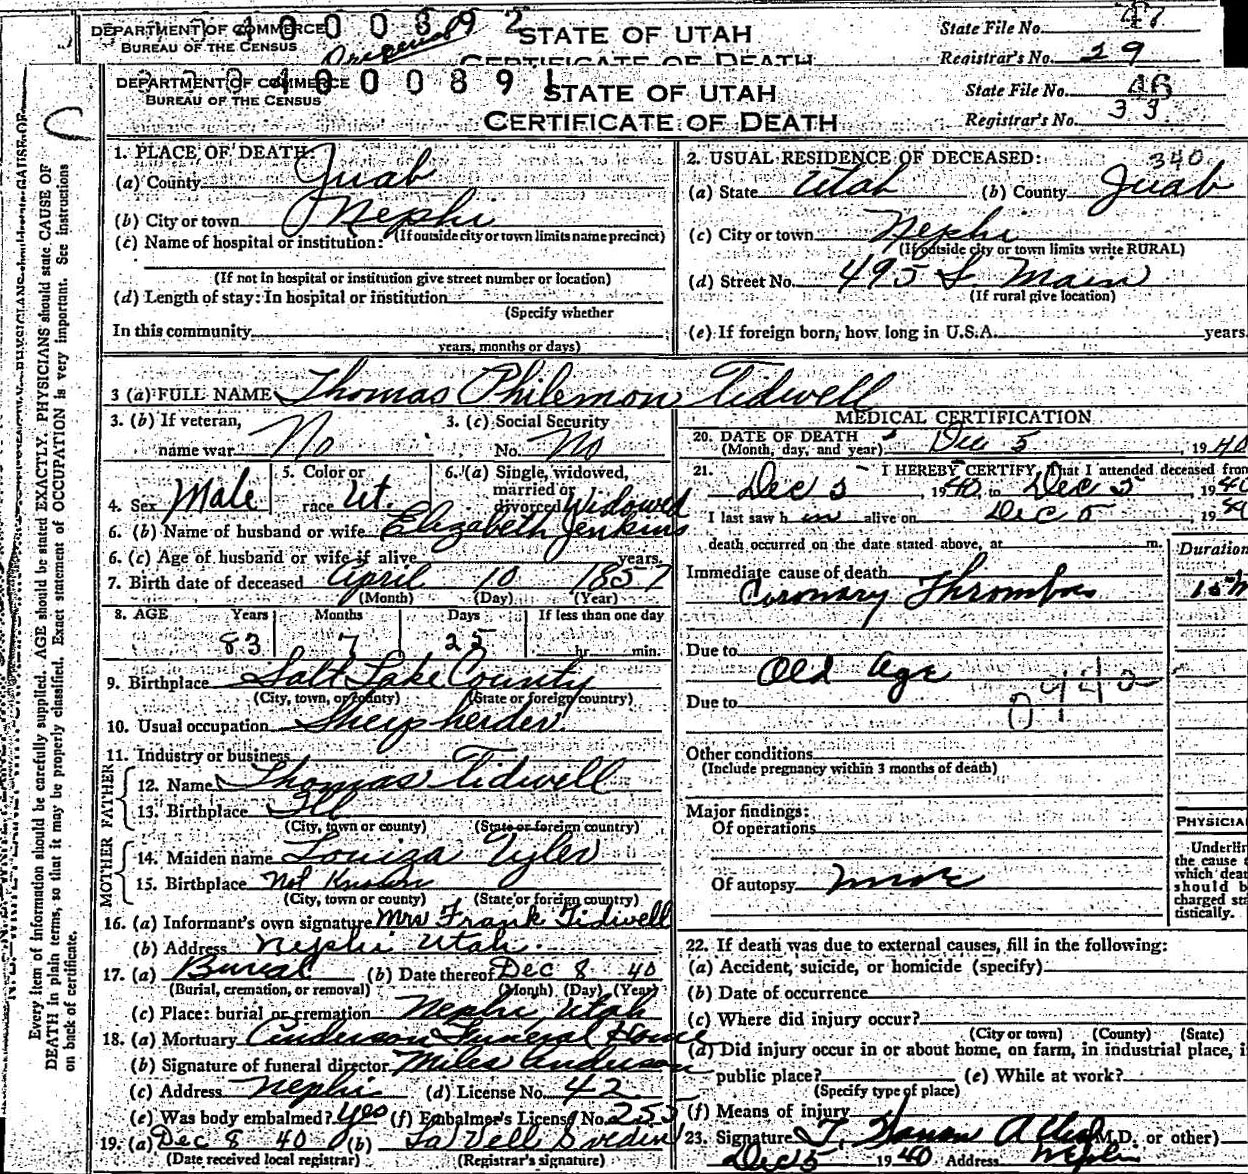 DEPARTMENT OF COMMERCE
BUREAU OF THE CENSUS
STATE OF UTAH
CERTIFICATE OF DEATH
State File No. 47
Registrar's No. 29
DEPARTMENT OF COMMERCE
BUREAU OF THE CENSUS
0 0 0 8 9 1
STATE OF UTAH
CERTIFICATE OF DEATH
State File No. 46
Registrar's No. 33
C
Every item of information should be carefully supplied. AGE should be stated EXACTLY. PHYSICIANS should state CAUSE OF
DEATH in plain terms, so that it may be properly classified. Exact statement of OCCUPATION is very important. See instructions
on back of certificate.
1. PLACE OF DEATH:
(a) County Juab
(b) City or town Nephi
(If outside city or town limits name precinct)
(c) Name of hospital or institution:
(If not in hospital or institution give street number or location)
(d) Length of stay: In hospital or institution
(Specify whether
In this community
years, months or days)
2. USUAL RESIDENCE OF DECEASED: 340
(a) State Utah (b) County Juab
(c) City or town Nephi
(If outside city or town limits write RURAL)
(d) Street No. 495 S. Main
(If rural give location)
(e) If foreign born, how long in U.S.A. years
3 (a) FULL NAME Thomas Philemon Tidwell
3. (b) If veteran, name war No
3. (c) Social Security No. No
4. Sex Male
5. Color or race Wt.
6. (a) Single, widowed, married or divorced Widowed
6. (b) Name of husband or wife Elizabeth Jenkins
6. (c) Age of husband or wife if alive years.
7. Birth date of deceased April 10 1857
(Month) (Day) (Year)
8. AGE Years Months Days If less than one day
83 7 25 hr. min.
9. Birthplace Salt Lake County
(City, town, or county) (State or foreign country)
10. Usual occupation Sheepherder
11. Industry or business
FATHER
12. Name Thomas Tidwell
13. Birthplace Ill
(City, town or county) (State or foreign country)
MOTHER
14. Maiden name Louiza Tyler
15. Birthplace Not Known
(City, town or county) (State or foreign country)
16. (a) Informant's own signature Mrs Frank Tidwell
(b) Address Nephi Utah
17. (a) Burial (b) Date thereof Dec 8 40
(Burial, cremation, or removal) (Month) (Day) (Year)
(c) Place: burial or cremation Nephi, Utah
18. (a) Mortuary Anderson Funeral Home
(b) Signature of funeral director Miles Anderson
(c) Address Nephi (d) License No. 42
(e) Was body embalmed? Yes (f) Embalmer's License No. 255
19. (a) Dec 8 40 (b)
(Date received local registrar) (Registrar's signature)
MEDICAL CERTIFICATION
20. DATE OF DEATH Dec 5, 1940
(Month, day, and year)
21. I HEREBY CERTIFY, That I attended deceased from
Dec 5 1940 to Dec 5, 1940
I last saw h im alive on Dec 5 19
death occurred on the date stated above, at m.
Duration
Immediate cause of death
Coronary Thrombos
Due to
Old Age
Due to
Other conditions
(Include pregnancy within 3 months of death)
Major findings:
Of operations
Of autopsy none
PHYSICIA
Underlin
the cause
which dea
should b
charged sta
tistically.
22. If death was due to external causes, fill in the following:
(a) Accident, suicide, or homicide (specify)
(b) Date of occurrence
(c) Where did injury occur?
(City or town) (County) (State)
(d) Did injury occur in or about home, on farm, in industrial place, i
public place? (e) While at work?
(Specify type of place)
(f) Means of injury
23. Signature (M.D. or other)
Dec 5 1940 Address Nephi